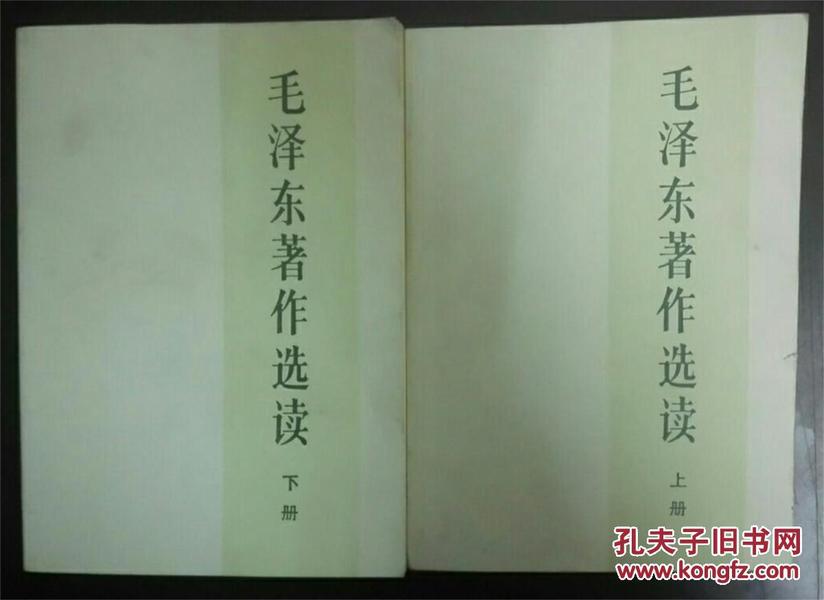 毛泽东著作选读
下册
毛泽东著作选读
上册
孔夫子旧书网
www.kongfz.com